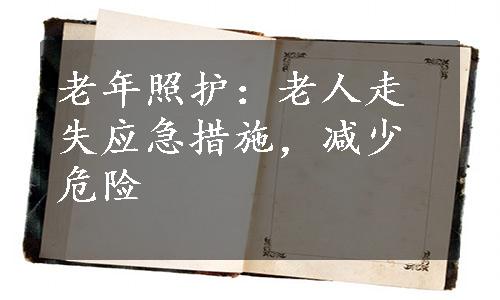 老年照护：老人走
失应急措施，减少
危险